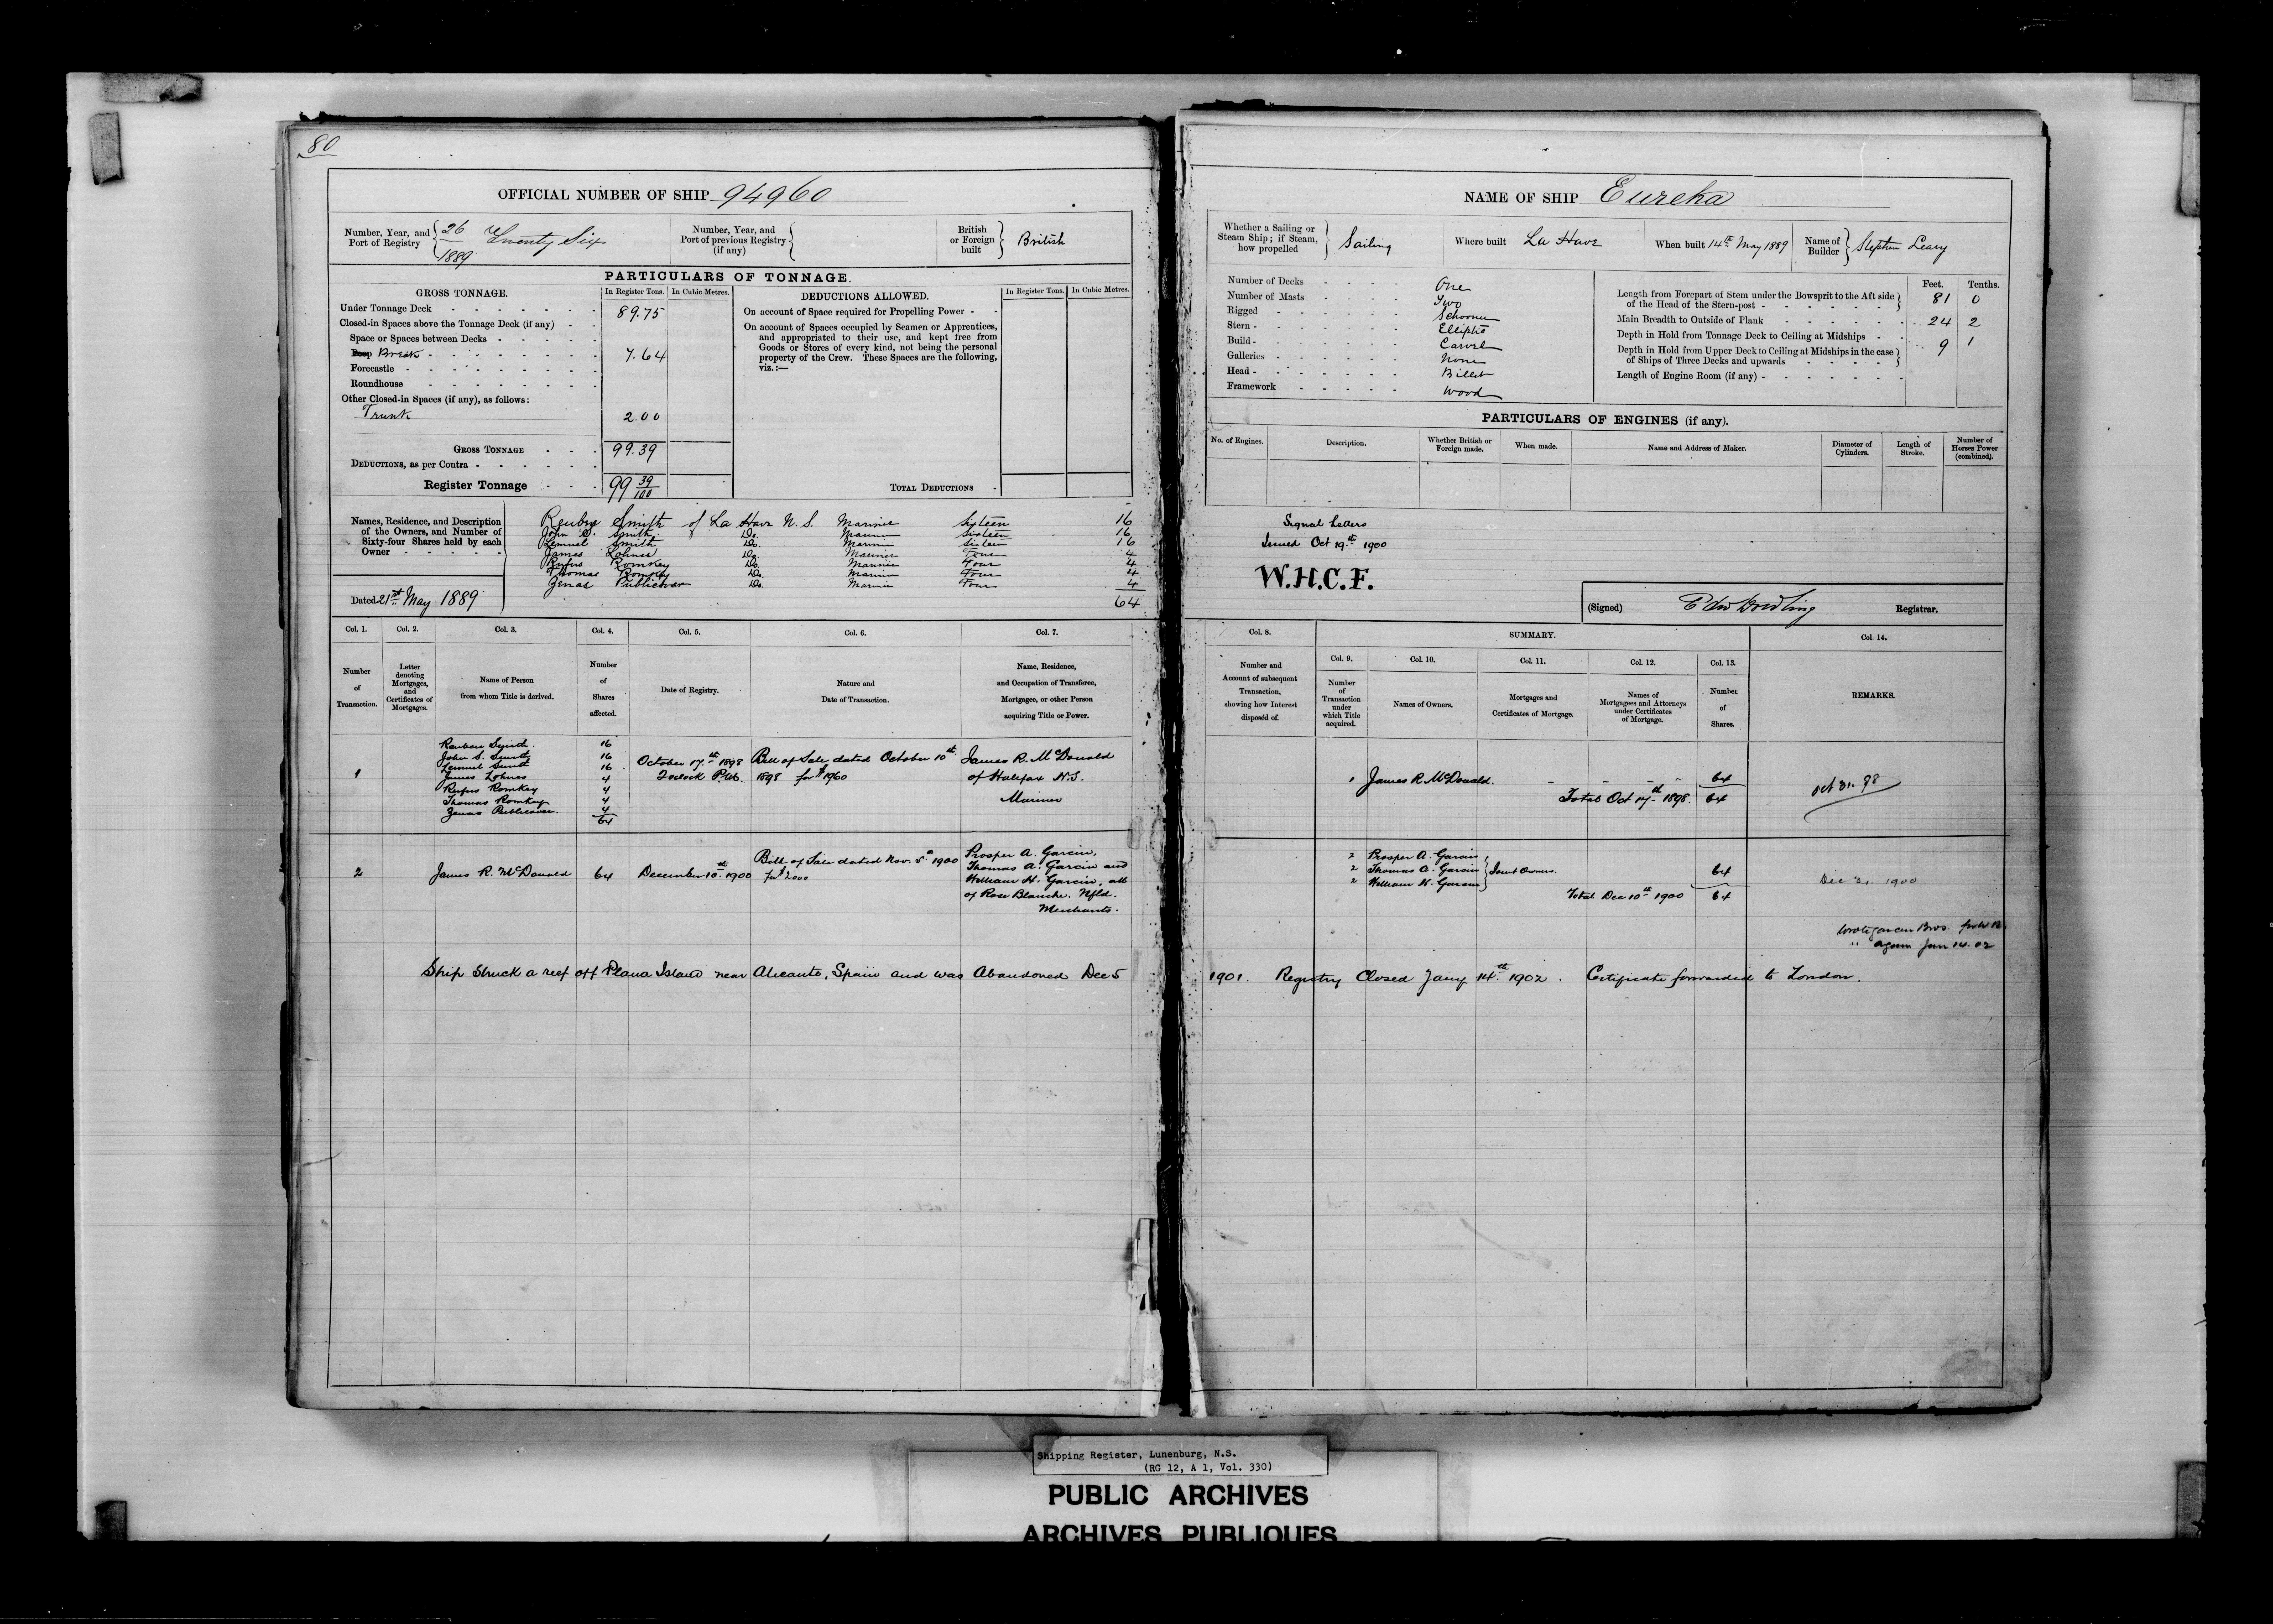 80
OFFICIAL NUMBER OF SHIP 94960
Number, Year, and Port of Registry { 26 / 1889 Twenty Six
Number, Year, and Port of previous Registry (if any) {
British or Foreign built } British
PARTICULARS OF TONNAGE.
GROSS TONNAGE.
In Register Tons. In Cubic Metres.
Under Tonnage Deck 89.75
Closed-in Spaces above the Tonnage Deck (if any)
Space or Spaces between Decks
Poop Break 7.64
Forecastle
Roundhouse
Other Closed-in Spaces (if any), as follows:
Trunk 2.00
GROSS TONNAGE 99.39
DEDUCTIONS, as per Contra
Register Tonnage 99 39/100
DEDUCTIONS ALLOWED.
In Register Tons. In Cubic Metres.
On account of Space required for Propelling Power
On account of Spaces occupied by Seamen or Apprentices,
and appropriated to their use, and kept free from
Goods or Stores of every kind, not being the personal
property of the Crew. These Spaces are the following,
viz.:—
TOTAL DEDUCTIONS
Names, Residence, and Description
of the Owners, and Number of
Sixty-four Shares held by each
Owner
Reuben Smith of La Have N.S. Mariner Sixteen 16
John S. Smith Do. Mariner Sixteen 16
Lemuel Smith Do. Mariner Sixteen 16
James Lohnes Do. Mariner Four 4
Rufus Romkey Do. Mariner Four 4
Thomas Romkey Do. Mariner Four 4
Zenas Publicover Do. Mariner Four 4
64
Dated 21st May 1889
Col. 1. Col. 2. Col. 3. Col. 4. Col. 5. Col. 6. Col. 7.
Number of Transaction.
Letter denoting Mortgages, and Certificates of Mortgages.
Name of Person from whom Title is derived.
Number of Shares affected.
Date of Registry.
Nature and Date of Transaction.
Name, Residence, and Occupation of Transferee, Mortgagee, or other Person acquiring Title or Power.
1
Reuben Smith 16
John S. Smith 16
Lemuel Smith 16
James Lohnes 4
Rufus Romkey 4
Thomas Romkey 4
Zenas Publicover. 4
64
October 17th 1898
2 oclock P.M.
Bill of Sale dated October 10th
1898 for $1960
James R. McDonald
of Halifax N.S.
Mariner
2 James R. McDonald 64 December 10th 1900
Bill of Sale dated Nov. 5th 1900
for $2000
Prosper A. Garcin,
Thomas A. Garcin and
William H. Garcin, all
of Rose Blanche. Nfld.
Merchants.
Ship Struck a reef off Plana Island near Alicante, Spain and was Abandoned Dec 5
NAME OF SHIP Eureka
Whether a Sailing or Steam Ship; if Steam, how propelled } Sailing
Where built La Have
When built 14th May 1889
Name of Builder } Stephen Leary
Number of Decks One
Number of Masts Two
Rigged Schooner
Stern Elliptic
Build Carvel
Galleries None
Head Billet
Framework Wood
Feet. Tenths.
Length from Forepart of Stem under the Bowsprit to the Aft side
of the Head of the Stern-post 81 0
Main Breadth to Outside of Plank 24 2
Depth in Hold from Tonnage Deck to Ceiling at Midships 9 1
Depth in Hold from Upper Deck to Ceiling at Midships in the case
of Ships of Three Decks and upwards
Length of Engine Room (if any)
PARTICULARS OF ENGINES (if any).
No. of Engines.
Description.
Whether British or Foreign made.
When made.
Name and Address of Maker.
Diameter of Cylinders.
Length of Stroke.
Number of Horses Power (combined).
Signal Letters
Issued Oct 19th 1900
W.H.C.F.
(Signed) Edw Dowling Registrar.
Col. 8. SUMMARY. Col. 14.
Col. 9. Col. 10. Col. 11. Col. 12. Col. 13.
Number and Account of subsequent Transaction, showing how Interest disposed of.
Number of Transaction under which Title acquired.
Names of Owners.
Mortgages and Certificates of Mortgage.
Names of Mortgagees and Attorneys under Certificates of Mortgage.
Number of Shares.
REMARKS.
1 James R. McDonald. 64
Total Oct 17th 1898. 64
Oct 31. 98
2 Prosper A. Garcin,
2 Thomas A. Garcin } Joint Owners. 64
2 William H. Garcin
Total Dec 10th 1900 64
Dec 31. 1900
Wrote Garcin Bros.
" again Jan 14. 02
1901. Registry Closed Jany 14th 1902. Certificate forwarded to London.
Shipping Register, Lunenburg, N.S.
(RG 12, A 1, Vol. 330)
PUBLIC ARCHIVES
ARCHIVES PUBLIQUES